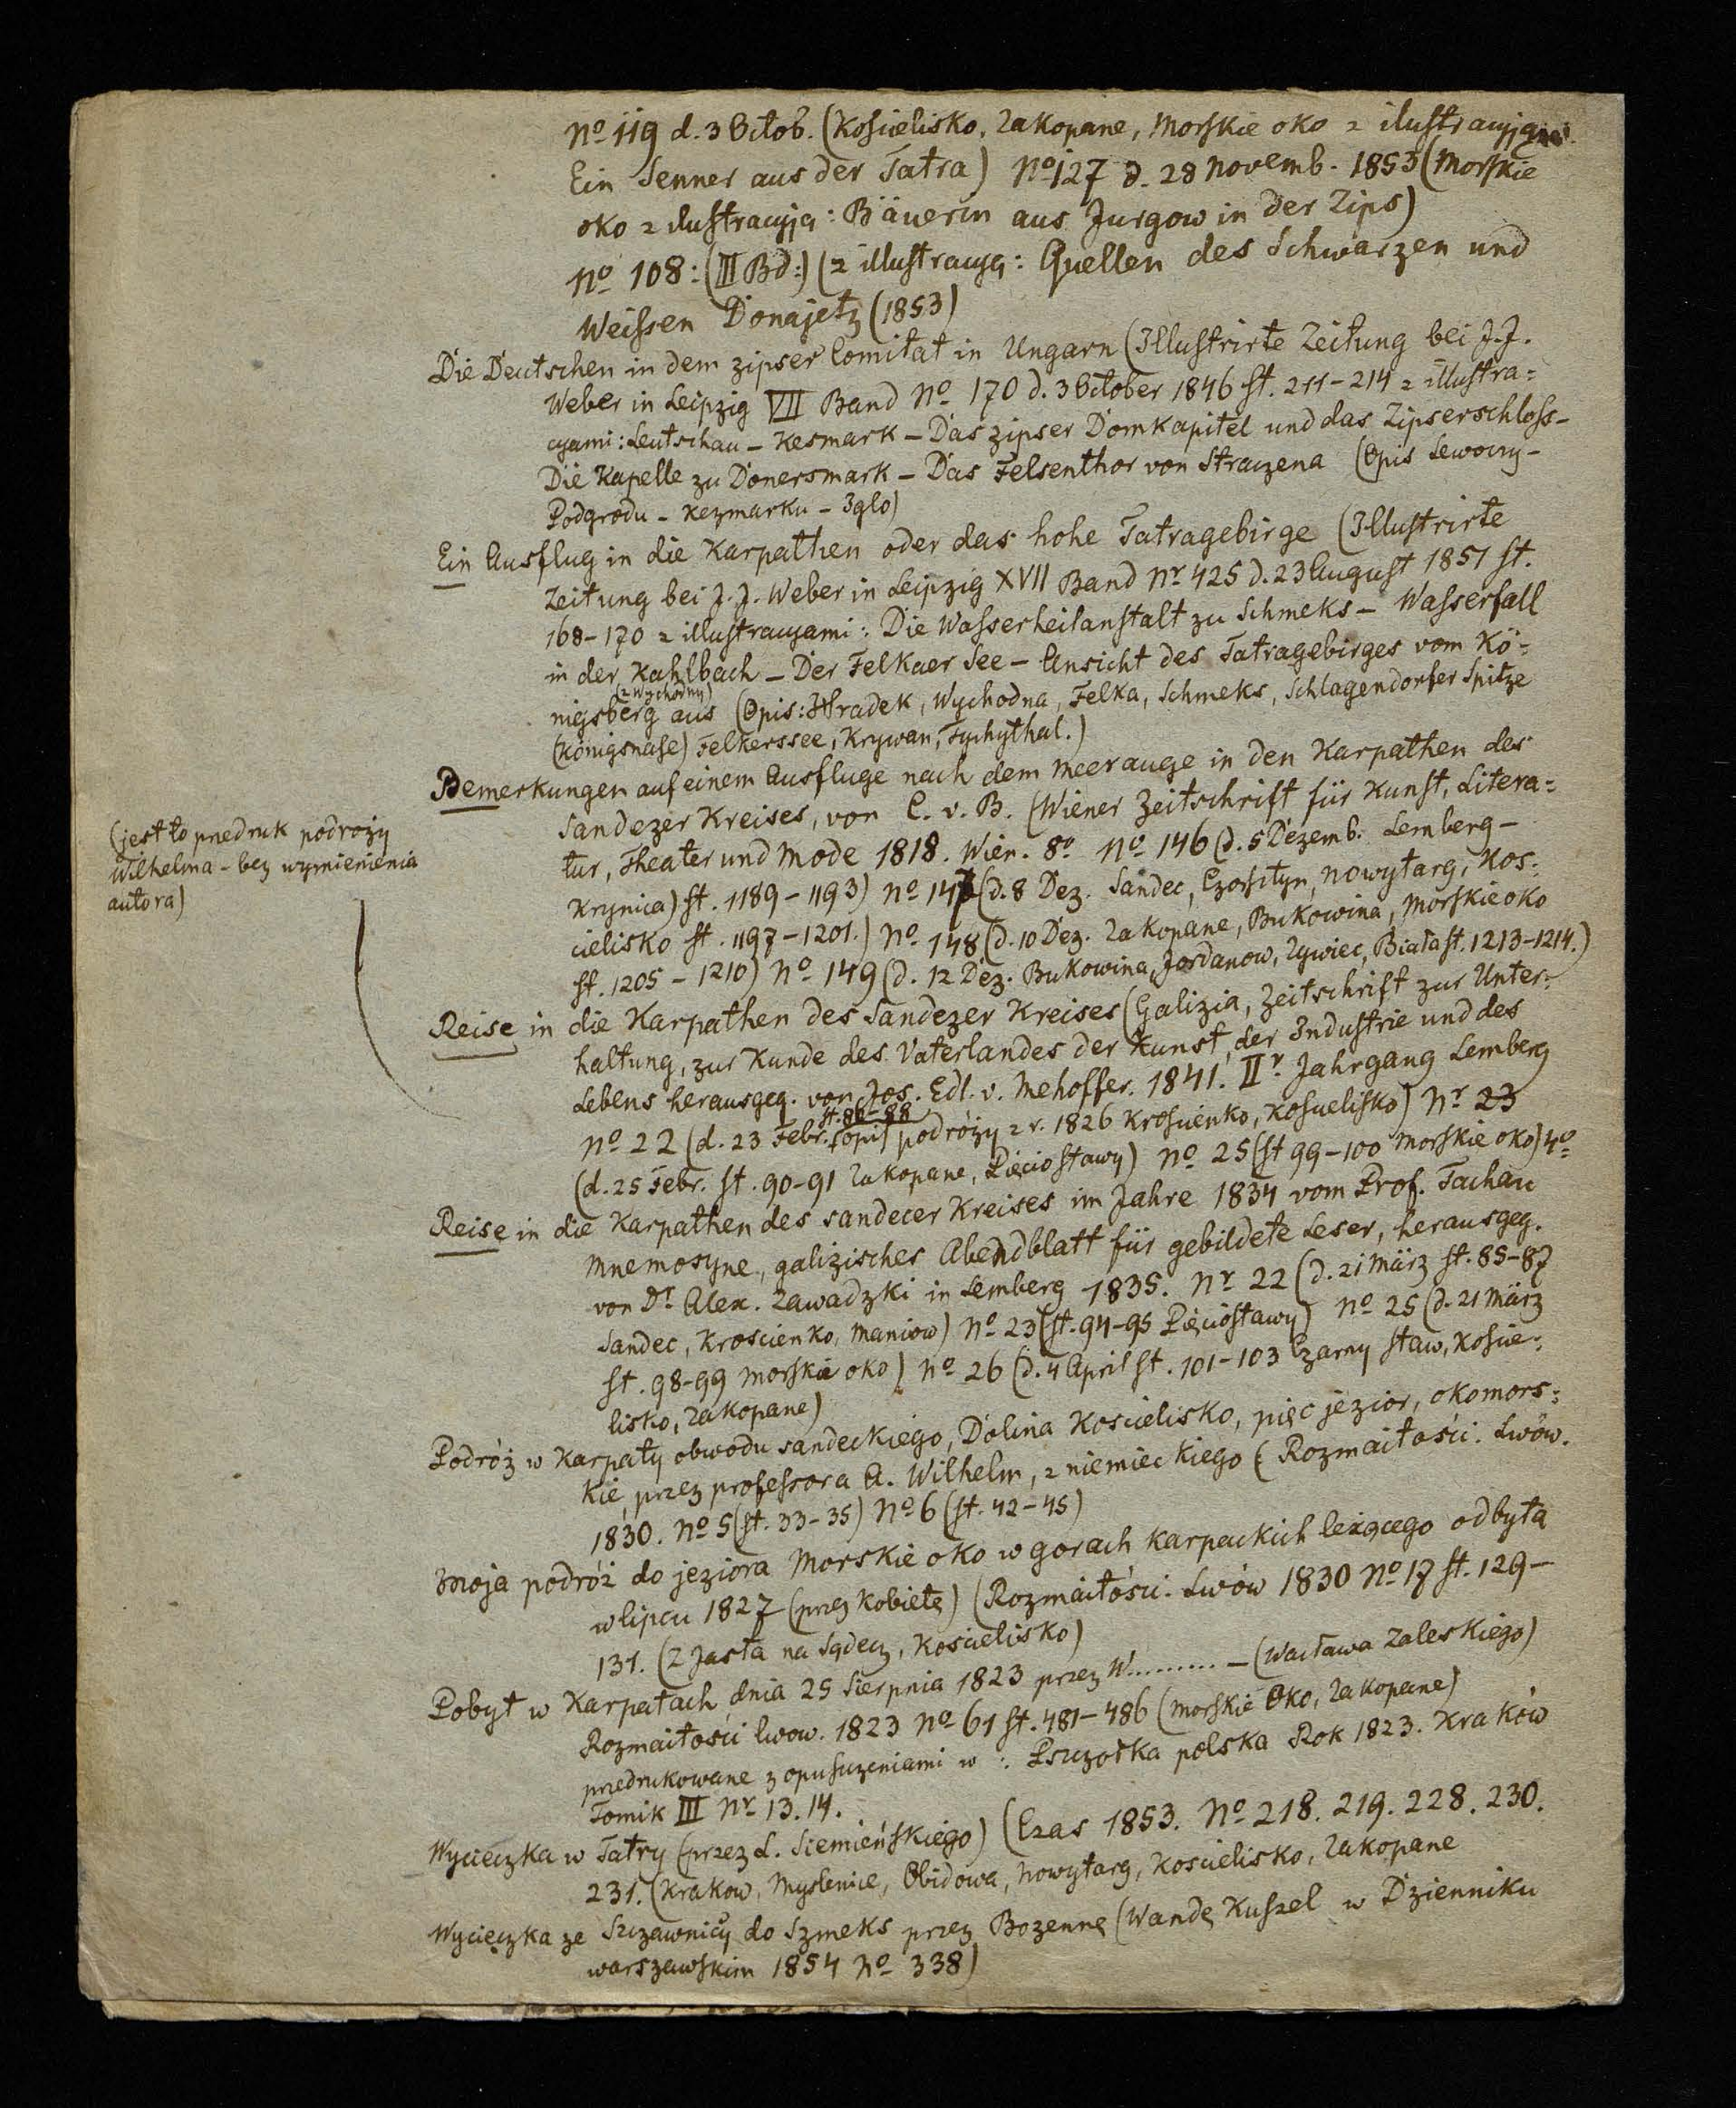 No 119 d. 3 Octob. (Kościelisko, Zakopane, Morskie oko z ilustracyją:
Ein Senner aus der Tatra) No 127 d. 28 Novemb. 1853 (Morskie
oko z ilustracyją: Bäuerin aus Jurgow in der Zips)
No 108: (III Bd:) (z illustracyą: Quellen des Schwarzen und
Weissen Donajetz (1853)
Die Deutschen in dem zipser Comitat in Ungarn (Illustrirte Zeitung bei J. J.
Weber in Leipzig VII Band No 170 d. 3 October 1846 st. 211-214 z illustra=
cyami: Leutschau - Kesmark - Das zipser Domkapitel und das Zipserschloss -
Die Kapelle zu Donersmark - Das Felsenthor von Straczena (Opis Lewoczy -
Podgrodu - Kezmarku - Iglo)
Ein Ausflug in die Karpathen oder das hohe Tatragebirge (Illustrirte
Zeitung bei J. J. Weber in Leipzig XVII Band Nr 425 d. 23 August 1851 st.
168-170 z illustracyami: Die Wasserheilanstalt zu Schmeks - Wasserfall
in der Kahlbach - Der Felkaer See - Ansicht des Tatragebirges vom Kö=
(z Wychodny)
nigsberg aus (Opis: Hradek, Wychodna, Felka, Schmeks, Schlagendorfer Spitze
(Königsnase) Felkersee, Krywan, Tychythal.)
Bemerkungen auf einem Ausfluge nach dem Meerauge in den Karpathen des
Sandezer Kreises, von C. v. B. (Wiener Zeitschrift für Kunst, Litera=
tur, Theater und Mode 1818. Wien. 8o No 146 (d. 5 Dezemb. Lemberg -
Krynica) st. 1189-1193) No 147 (d. 8 Dez. Sandec, Czorsztyn, Nowytarg, Kos=
cielisko st. 1197-1201.) No 148 (d. 10 Dez. Zakopane, Bukowina, Morskie oko
st. 1205-1210) No 149 (d. 12 Dez. Bukowina, Jordanow, Zywiec, Biała st. 1213-1214.)
(jest to przedruk podroży
Wilhelma - bez wymienienia
autora)
Reise in die Karpathen des Sandezer Kreises (Galizia, Zeitschrift zur Unter=
haltung, zur Kunde des Vaterlandes der Kunst, der Industrie und des
Lebens herausgeg. von Jos. Edl. v. Mehoffer. 1841. IIr Jahrgang Lemberg
st. 86-88
No 22 (d. 23 Febr. (opis podróży z r. 1826 Krościenko, Kościelisko) Nr 23
(d. 25 Febr. st. 90-91 Zakopane, Pięciostawy) No 25 (st 99-100 Morskie oko) 4o
Reise in die Karpathen des sandecer Kreises im Jahre 1834 vom Prof. Tachau
Mnemosyne, galizisches Abendblatt für gebildete Leser, herausgeg.
von Dr. Alex. Zawadzki in Lemberg 1835. Nr 22 (d. 21 März st. 85-87
Sandec, Kroscienko, Maniow) No 23 (st. 94-95 Pięciostawy) No 25 (d. 21 März
st. 98-99 Morskie oko) No 26 (d. 4 April st. 101-103 Czarny staw, Koście=
lisko, Zakopane)
Podróż w Karpaty obwodu sandeckiego, Dolina Kościelisko, pięć jezior, oko mors=
kie, przez professora A. Wilhelm, z niemieckiego (Rozmaitości. Lwów.
1830. No 5 (st. 33-35) No 6 (st. 42-45)
Moja podróż do jeziora Morskie oko w gorach karpackich leżącego odbyta
w lipcu 1827 (przez kobietę) (Rozmaitości. Lwów 1830 No 17 st. 129-
131. (Z Jasła na Sądecz, Kościelisko)
Pobyt w Karpatach dnia 25 Sierpnia 1823 przez W......... - (Wacława Zaleskiego)
Rozmaitości lwow. 1823 No 61 st. 481-486 (Morskie Oko, Zakopane)
przedrukowane z opuszczeniami w: Pszczołka polska Rok 1823. Kraków
Tomik III Nr 13. 14.
Wycieczka w Tatry (przez L. Siemieńskiego) (Czas 1853. No 218. 219. 228. 230.
231. (Krakow, Myslenice, Obidowa, Nowytarg, Kościelisko, Zakopane
Wycieczka ze Szczawnicy do Szmeks przez Bozennę (Wandę Kuszel w Dzienniku
warszawskim 1854 No 338)